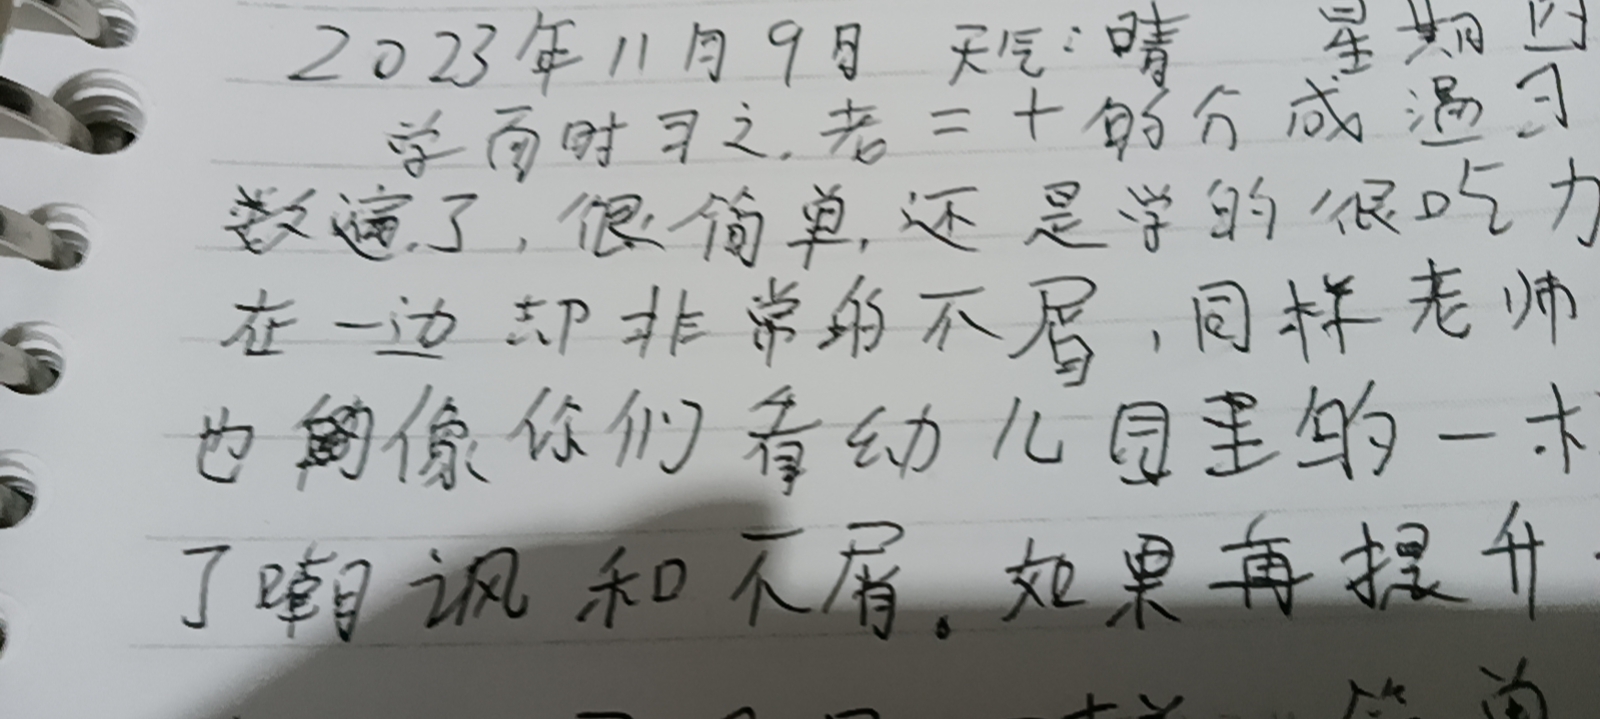 2023年11月9日 天气:晴 星期四
学而时习之.老二十的分成过习
数遍了,很简单,还是学的很吃力
在一边却非常的不屑,同样老师
也的像你们看幼儿园里的一
了嘲讽和不屑.如果再提升
简单